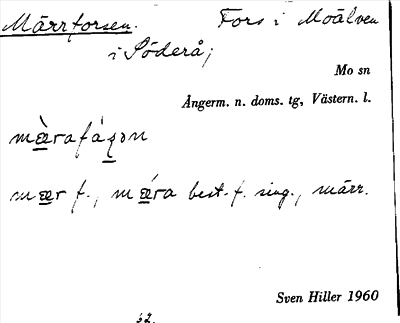 Märrforsen. Fors i Moälven
i Söderå;
Mo sn
Ångerm. n. doms. tg, Västern. l.
mæ̀rafáʂǝn
mær f., mǽra best. f. sing., märr.
Sven Hiller 1960
52.